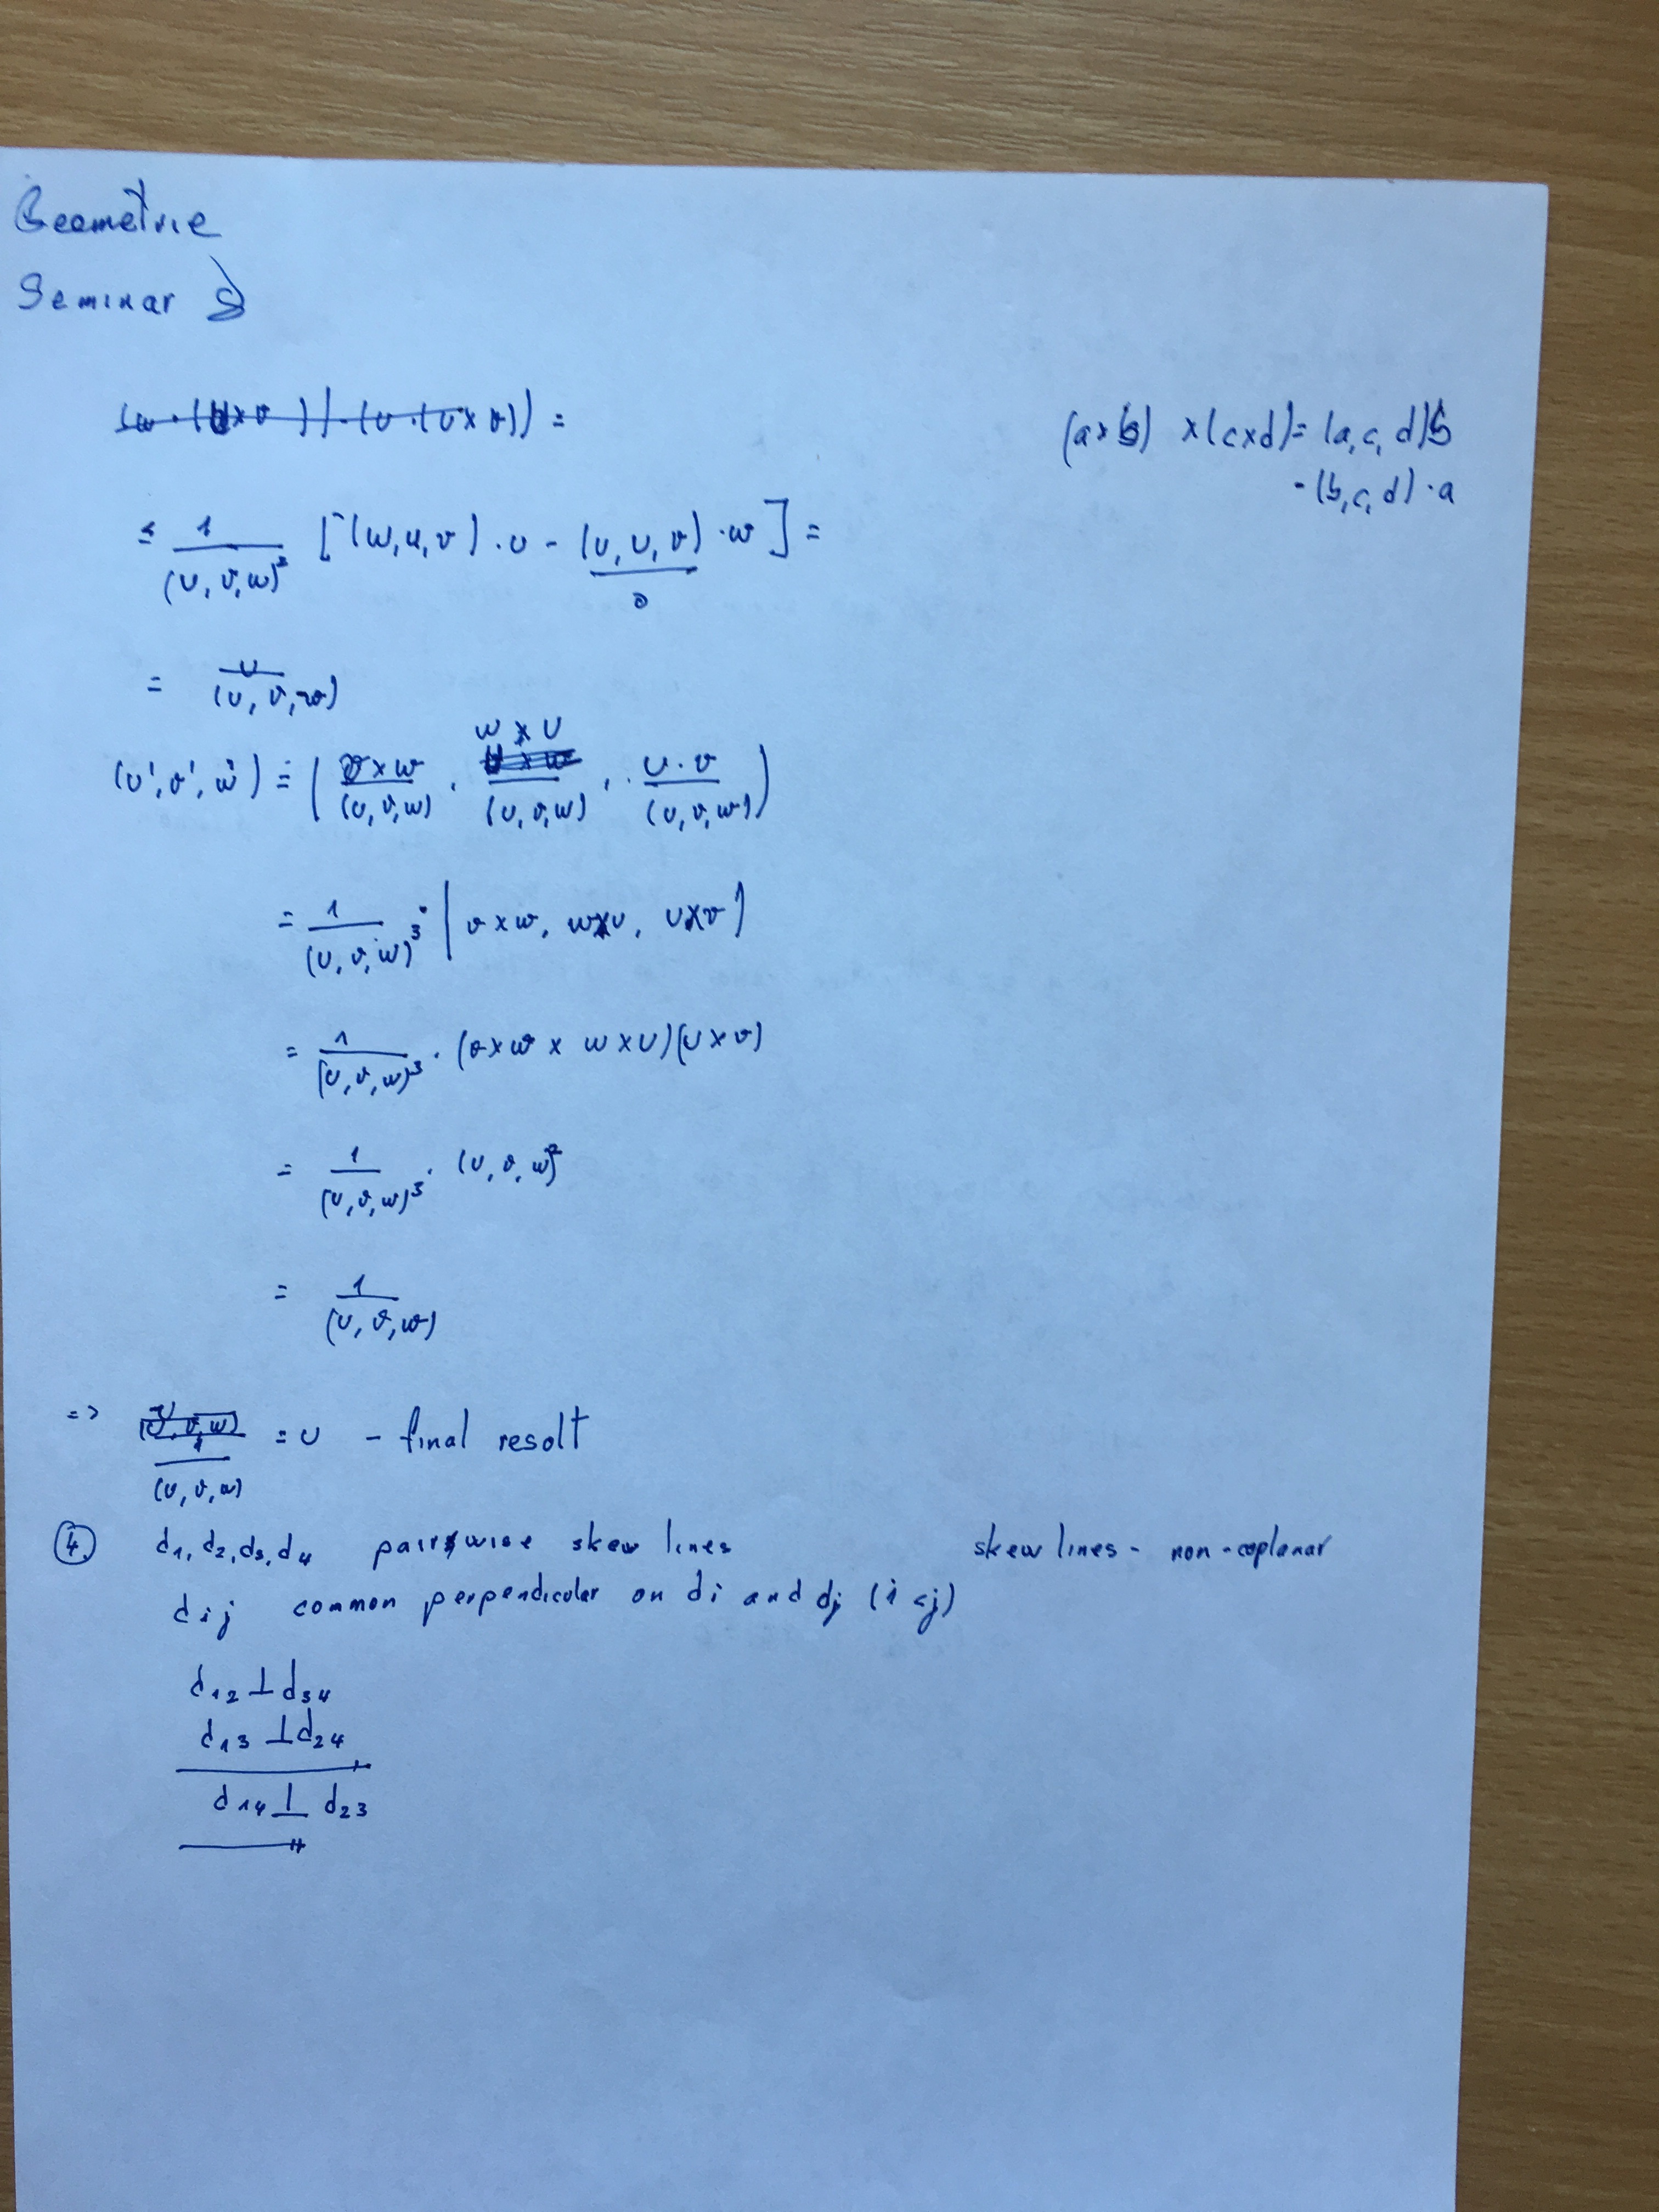 Geometrie
Seminar
(w·(u×v))·(u·(u×v)) =
(a×b) ×(c×d)= (a,c,d)b
-(b,c,d)·a
= 1/(u,v,w)² [(w,u,v)·u - (u,u,v)·w] =
0
= u/(u,v,w)
w×u
(u',v',w') = (v×w/(u,v,w), /(u,v,w), u·v/(u,v,w))
= 1/(u,v,w)³ · (v×w, w×u, u×v)
= 1/(u,v,w)³ · (v×w × w×u)(u×v)
= 1/(u,v,w)³ · (u,v,w)²
= 1/(u,v,w)
=> u/(u,v,w) / 1/(u,v,w) = u - final result
4. d1, d2, d3, d4 pairwise skew lines skew lines - non-coplanar
dij common perpendicular on di and dj (i<j)
d12 ⊥ d34
d13 ⊥ d24
d14 ⊥ d23